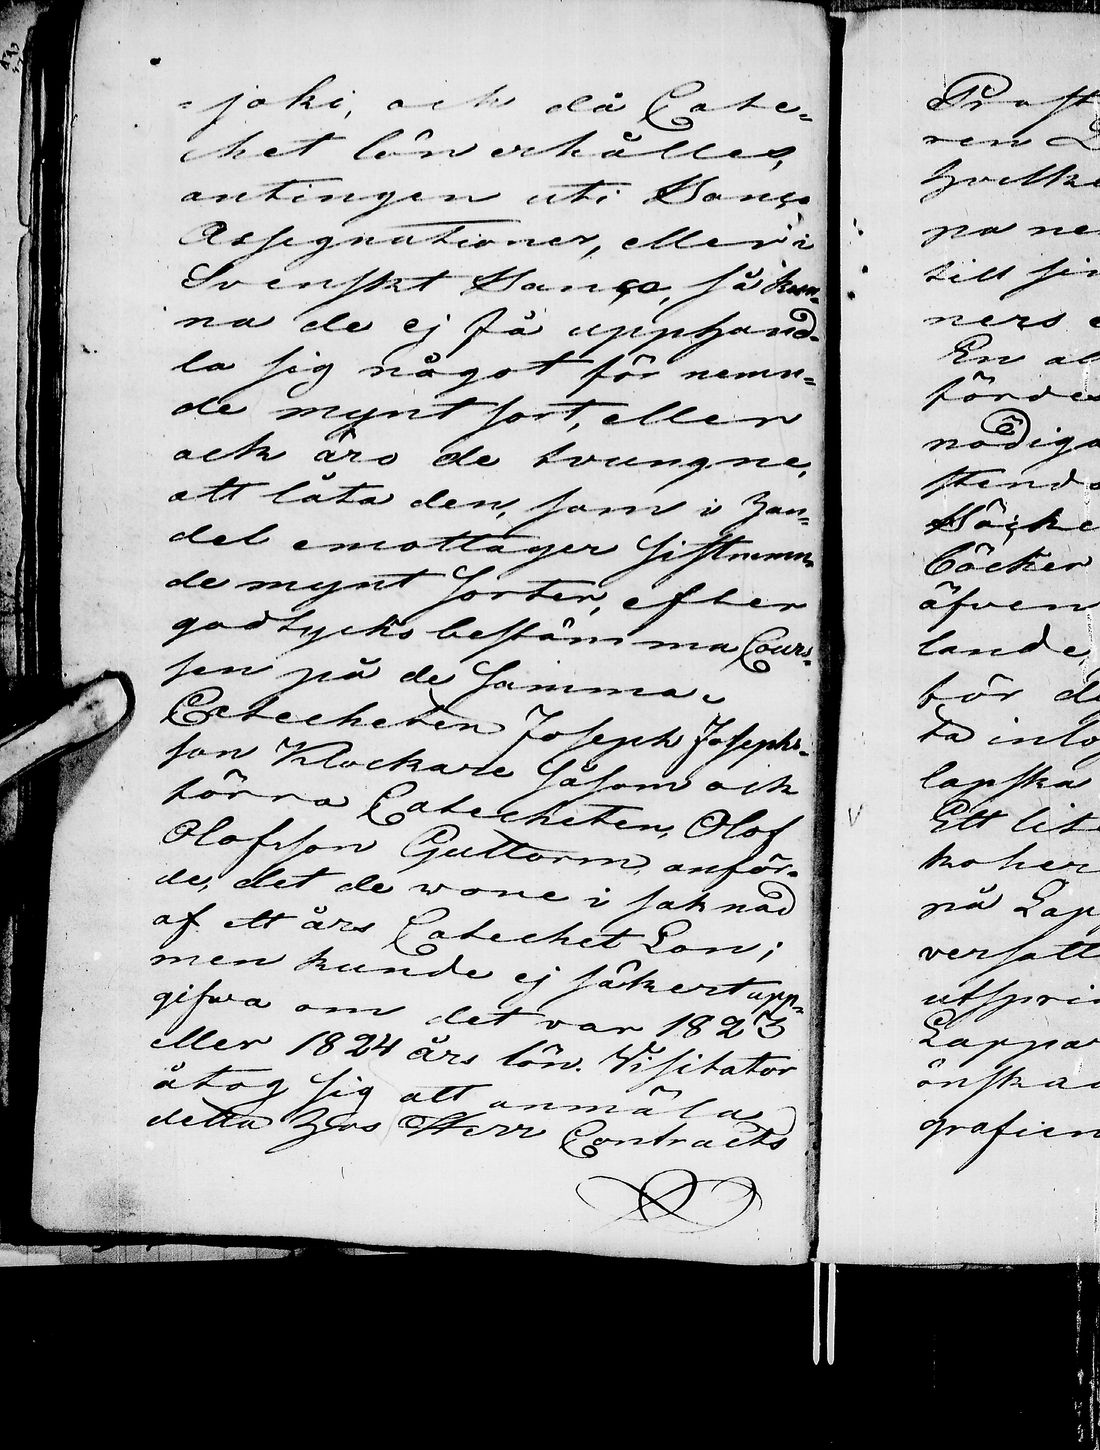 -joki, och då Cate-
chet lön erhålles,
antingen uti Banco
Assegnationer, eller i
Svenskt Banco, så kun-
na de ej få upphand-
la sig något för nemn-
de mynt sort, eller
ock äro de tvungne,
att låta den, som i han-
del emottager sistnemn-
de mynt sorter, efter
godtycke bestämma Cour-
sen på de samma.
Catecheten Joseph Josephs-
son Klockare såsom ock
förra Catecheten, Olof
Olofsson Guttorm, anför-
de, det de wore i saknad
af ett års Catechet Lön;
men kunde ej säkert upp-
gifva om det var 1823
eller 1824 års lön. Visitator
åtog sig att anmäla
detta hos Herr Contracts
Prost
ren
hvilke
pa ne
till sin
ners
En al
fördes
nödiga
stend
böcker
äfven
lande,
för d
ta inlö
lapska
Ett lit
koher
på Lap
versatt
utspri
Lappar
önskad
grafien